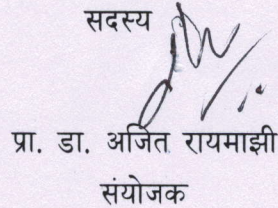 सदस्य
प्रा. डा. अजित रायमाझी
संयोजक